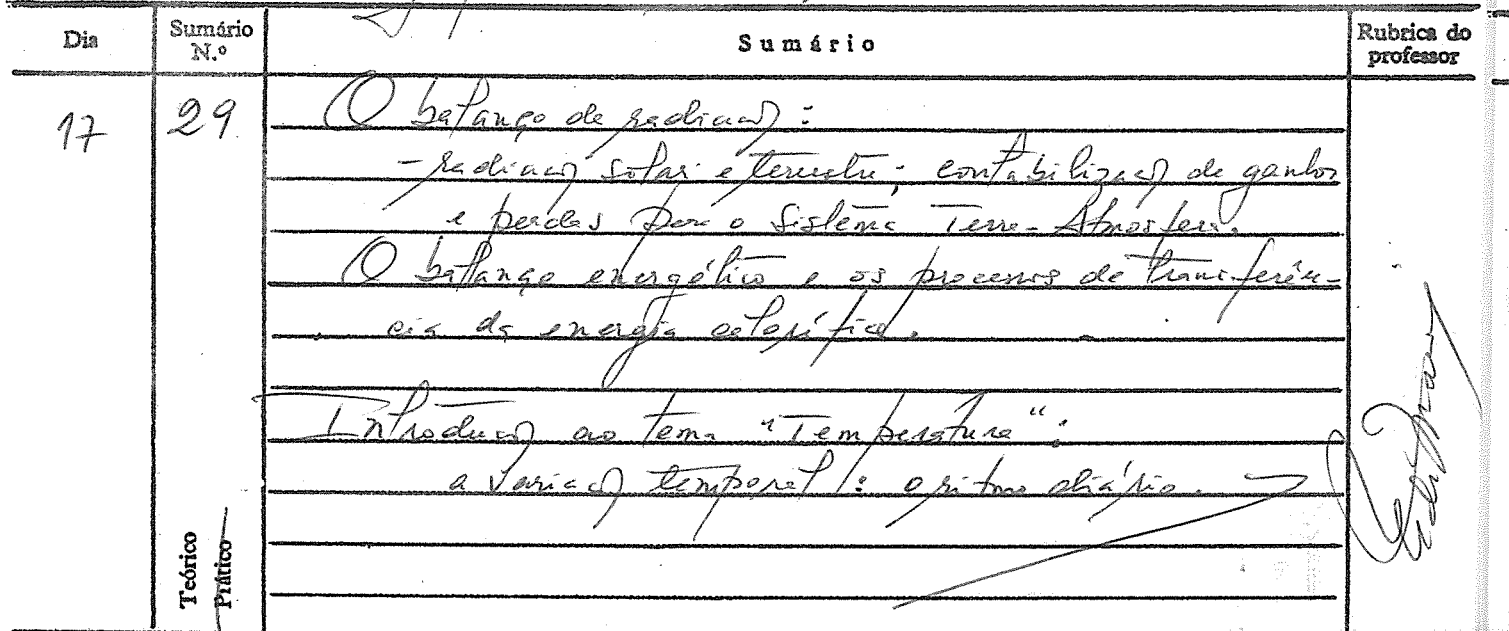 Dia Sumário N.º Sumário Rubrica do professor
17 29 O balanço de radiação :
- radiação solar e terrestre; contabilização de ganhos
e perdas para o Sistema Terra-Atmosfera.
O balanço energético e os processos de transferên-
cia da energia calorífica.
Introdução ao tema "Temperatura" :
a variação temporal : o ritmo diário.
Teórico
Prático